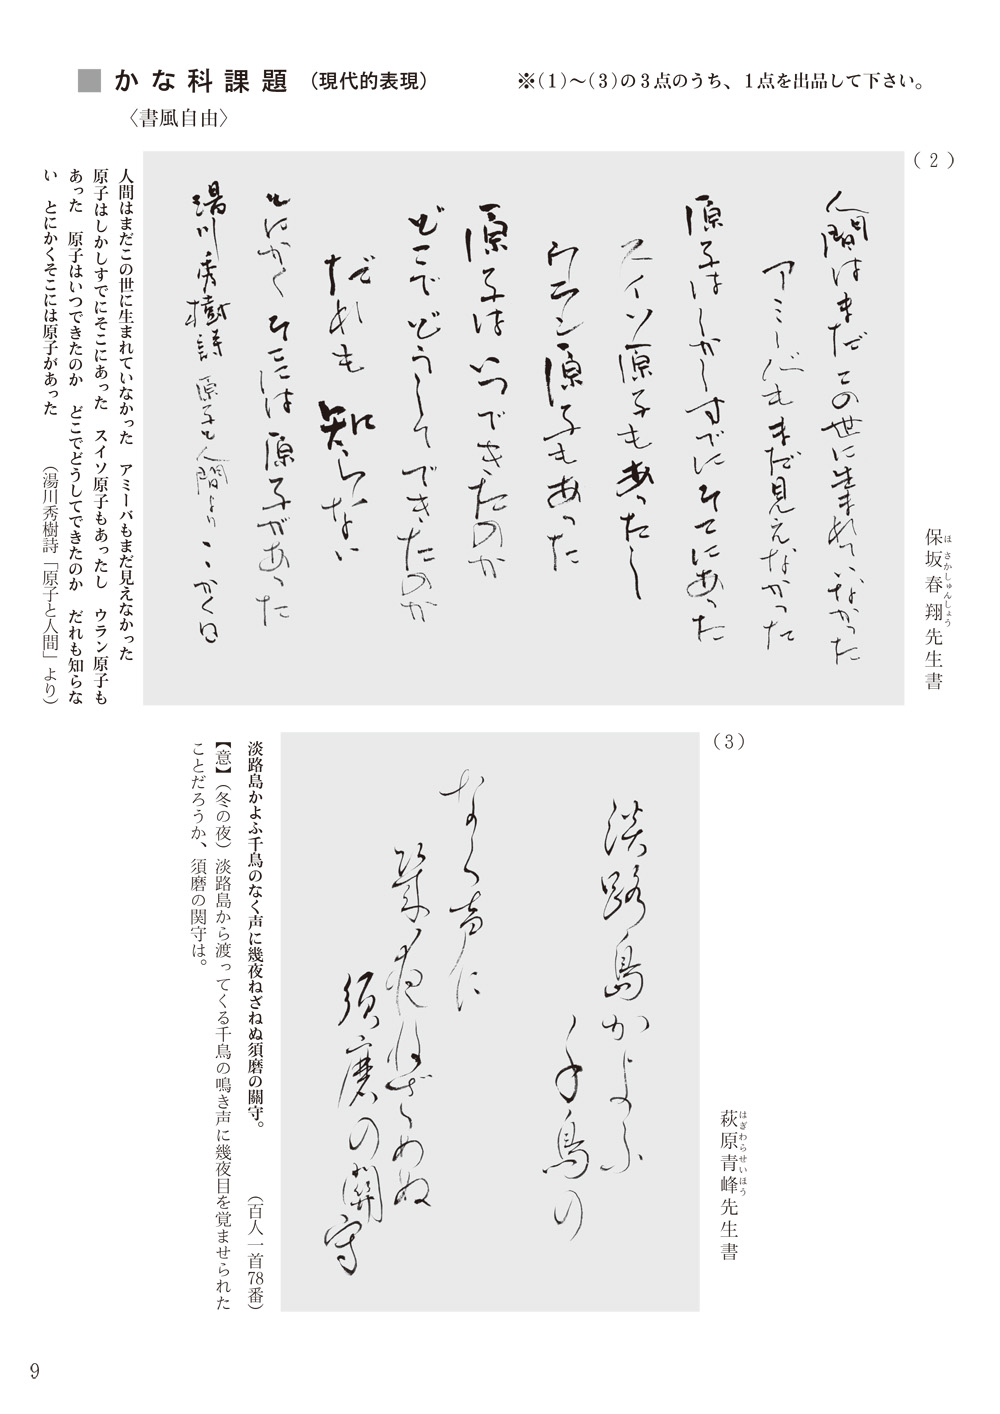 ■ かな科課題（現代的表現）
※（1）～（3）の3点のうち、1点を出品して下さい。
〈書風自由〉
（2）
保坂春翔先生書
ほさかしゅんしょう
人間はまだこの世に生まれていなかった
アミーバもまだ見えなかった
原子はしかしすでにそこにあった
スイソ原子もあったし
ウラン原子もあった
原子はいつできたのか
どこでどうしてできたのか
だれも知らない
とにかくそこには原子があった
湯川秀樹詩 原子と人間より かく
人間はまだこの世に生まれていなかった　アミーバもまだ見えなかった
原子はしかしすでにそこにあった　スイソ原子もあったし　ウラン原子も
あった　原子はいつできたのか　どこでどうしてできたのか　だれも知らな
い　とにかくそこには原子があった
（湯川秀樹詩「原子と人間」より）
（3）
萩原青峰先生書
はぎわらせいほう
淡路島かよふ
千鳥の
なく声に
幾夜ねざめぬ
須磨の關守
淡路島かよふ千鳥のなく声に幾夜ねざねぬ須磨の關守。
（百人一首78番）
【意】（冬の夜）淡路島から渡ってくる千鳥の鳴き声に幾夜目を覚ませられた
ことだろうか、須磨の関守は。
9